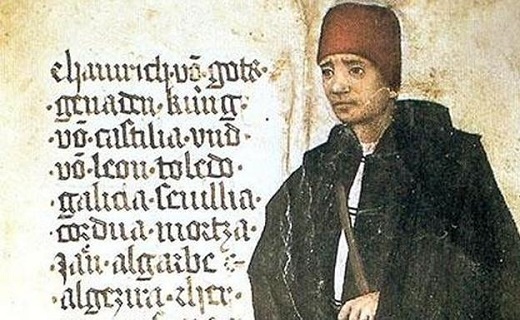 hainrich · võ · gots ·
· genaden · küng ·
· võ · castilia · vnd ·
· võ · leon · toledo ·
· galicia · seuillia ·
cordua · mortza ·
· Jaẽn · algarbe
· algezira ·